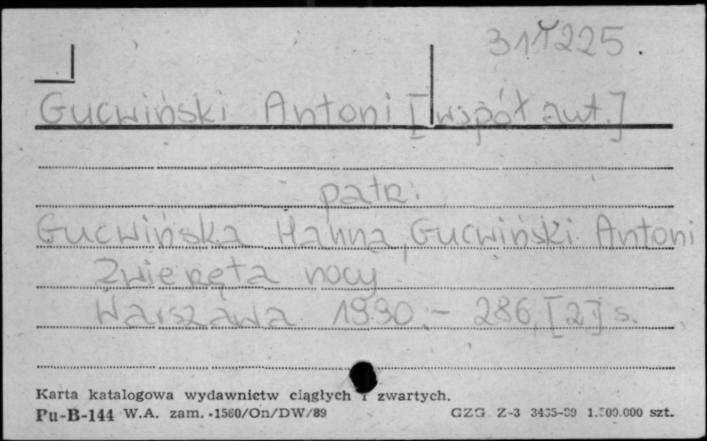 311225.
Gucwiński Antoni [współaut.]
patrz:
Gucwińska Hanna, Gucwiński Antoni
Zwierzęta nocy
Warszawa 1990.- 286, [2] s.
Karta katalogowa wydawnictw ciągłych i zwartych.
Pu-B-144 W.A. zam. 1560/On/DW/89 GZG Z-3 1.500.000 szt.